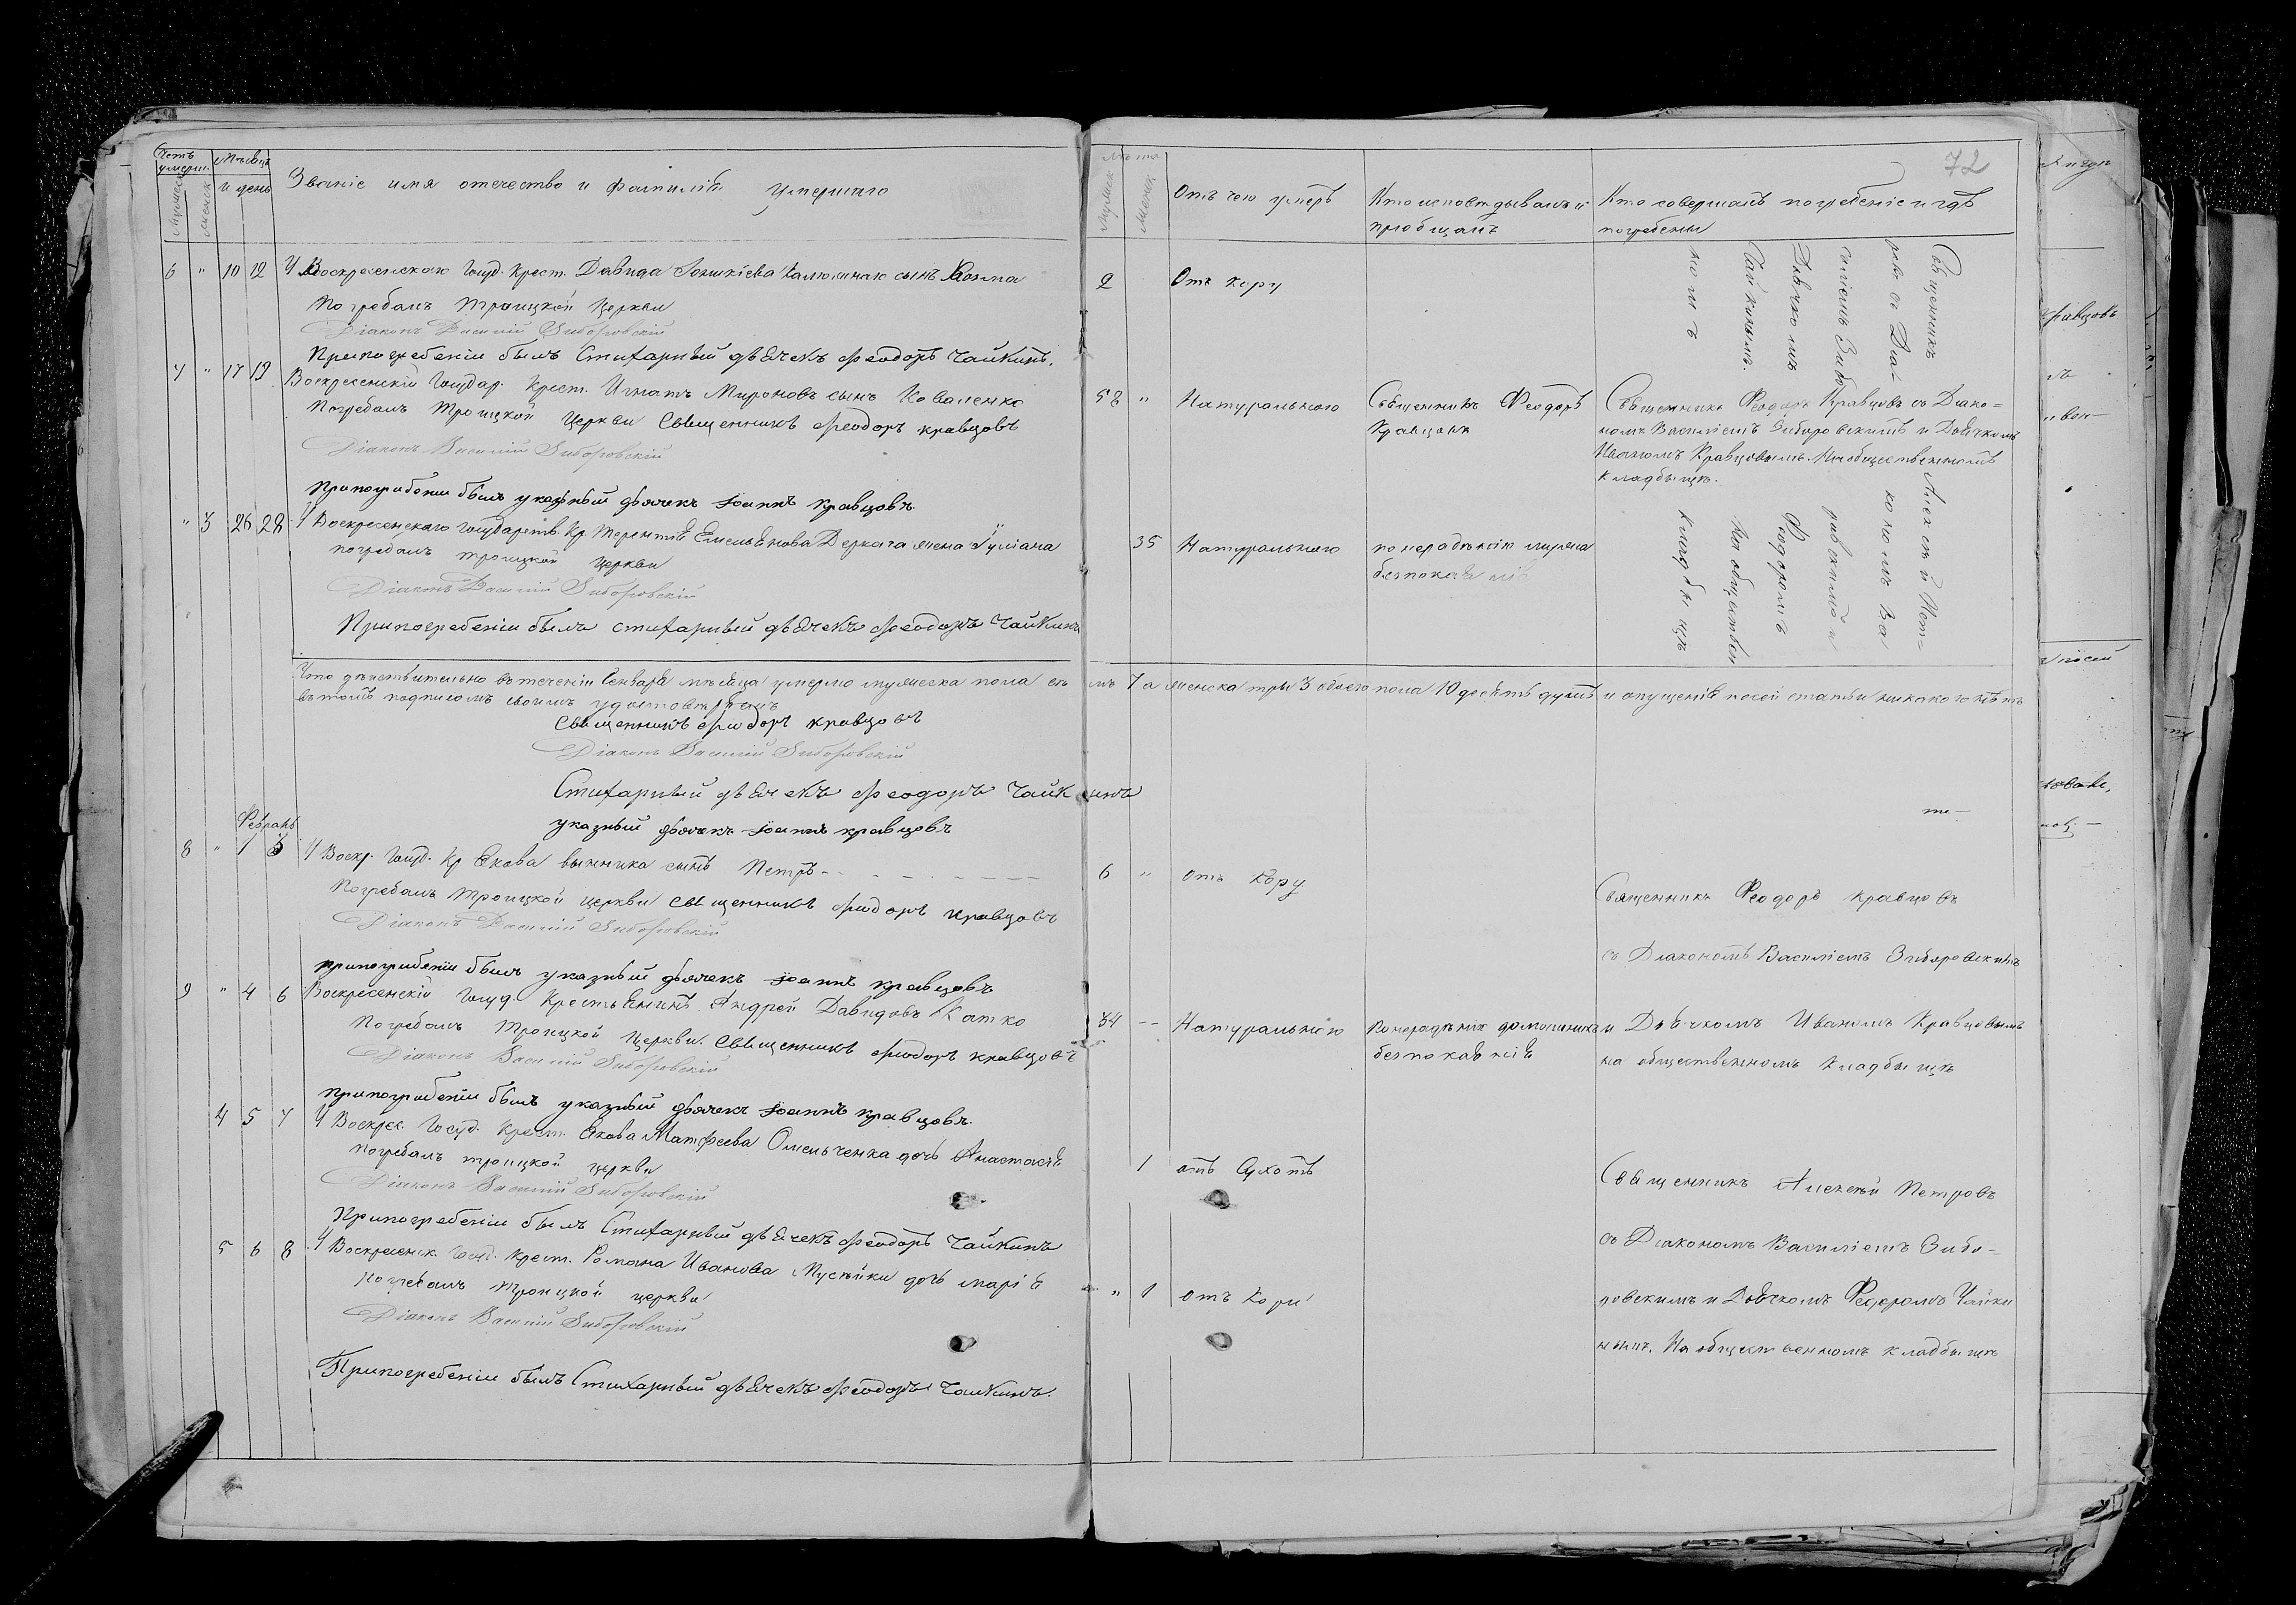 Счетъ умерш.
Мѣсяцъ и день
Званіе имя отечество и фамилія умершаго
мужеск
женск
6 " 10 12 У Воскресенскаго Госуд. Крест. Давида сынъ Козма
Погребалъ Троицкой Церкви
Діаконъ Василій Зиборовскій
При погребеніи былъ Стихарный дьячекъ Феодоръ Чайкинъ.
7 " 17 19 Воскресенскій Государ. Крест. Игнатъ Мироновъ сынъ Коваленко
Погребалъ Троицкой Церкви Священникъ Феодоръ Кравцовъ
Діаконъ Василій Зиборовскій
При погребеніи былъ указный дьячекъ Іоаннъ Кравцовъ
" 3 26 28 У Воскресенскаго Государств. Кр. Терентія Емельянова Деркача жена Іуліана
погребалъ троицкой церкви
Діаконъ Василій Зиборовскій
При погребеніи былъ стихарный дьячекъ Феодоръ Чайкинъ
Что дѣйствительно въ теченіи Генваря мѣсяца умерло мужеска пола семь 7 а женска три 3 обоего пола 10 десять душъ и опущенія по сей статьи никакого нѣтъ
въ томъ подписомъ своимъ удостовѣряемъ
Священникъ Феодоръ Кравцовъ
Діаконъ Василій Зиборовскій
Стихарный дьячекъ Феодоръ Чайкинъ
указный дьячекъ Іоаннъ Кравцовъ
Февраль
8 " 1 3 У Воскр. Госуд. Кр. Якова Винника сынъ Петръ
Погребалъ Троицкой церкви Священникъ Феодоръ Кравцовъ
Діаконъ Василій Зиборовскій
При погребеніи былъ указный дьячекъ Іоаннъ Кравцовъ
9 " 4 6 Воскресенскій Госуд. Крестьянинъ Андрей Давидовъ Катко
Погребалъ Троицкой Церкви. Священникъ Феодоръ Кравцовъ
Діаконъ Василій Зиборовскій
При погребеніи былъ указный дьячекъ Іоаннъ Кравцовъ
4 5 7 У Воскрес. Госуд. Крест. Якова Матфеева Омельченка дочь Анастасія
Погребалъ троицкой церкви
Діаконъ Василій Зиборовскій
При погребеніи былъ Стихарный дьячекъ Феодоръ Чайкинъ
5 6 8 У Воскресенск. Госуд. Крест. Романа Иванова Мусѣйки дочь Марія
Погребалъ Троицкой церкви
Діаконъ Василій Зиборовскій
При погребеніи былъ Стихарный дьячекъ Феодоръ Чайкинъ.
72
лѣта
мужеск
женск
Отъ чего умеръ
Кто исповѣдывалъ и пріобщалъ
Кто совершалъ погребеніе и гдѣ погребены
2 Отъ кору
Священникъ Алексѣй Пет-
ровъ съ Діа-
кономъ Ва
силіемъ Зибо
ровскимъ и
Дьячкомъ Феодоромъ
Чайкинымъ. На обществен
номъ кладбищѣ
58 " Натурального
Священникъ Феодоръ
Кравцовъ
Священникъ Феодоръ Кравцовъ съ Діако=
номъ Василіемъ Зиборовскимъ и Дьячкомъ
Иваномъ Кравцовымъ. На общественномъ
кладбищѣ.
35 Натурального
по нерадѣнію мужа
безпокаянія
6 " отъ кору
Священникъ Феодоръ Кравцовъ
съ Діакономъ Василіемъ Зиборовскимъ
84 -- Натурального
По нерадѣнію домашнихъ
безпокаянія
и Дьячкомъ Иваномъ Кравцовымъ
на общественномъ кладбищѣ
1 отъ Сухотъ
Священникъ Алексѣй Петровъ
съ Діакономъ Василіемъ Зибо-
ровскимъ и Дьячкомъ Федоромъ Чайки
нымъ. На общественномъ кладбищѣ
" 1 отъ Кори